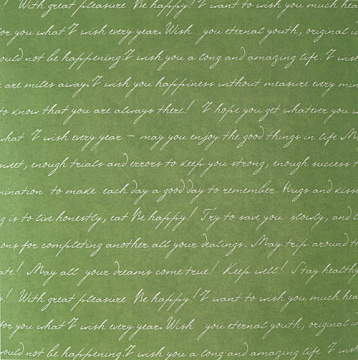 ! With great pleasure Be happy! I want to wish you much hea
for you what I wish every year. Wish you eternal youth, original id
ould not be happening. I wish you a long and amazing life. I wish
are miles away. I wish you happiness without measure every min
to know that you are always there! I hope you get whatever you w
what I wish every year – may you enjoy the good things in life M
sweet, enough trials and errors to keep you strong, enough success t
mination to make each day a good day to remember. Hugs and kisse
g is to live honestly, eat Be happy! Try to save you slowly, and l
ons for completing another all your dealings. May trip around th
ate! May all your dreams come true! Keep well! Stay health
s! With great pleasure Be happy! I want to wish you much hea
for you what I wish every year. Wish you eternal youth, original id
ould not be happening. I wish you a long and amazing life. I wish